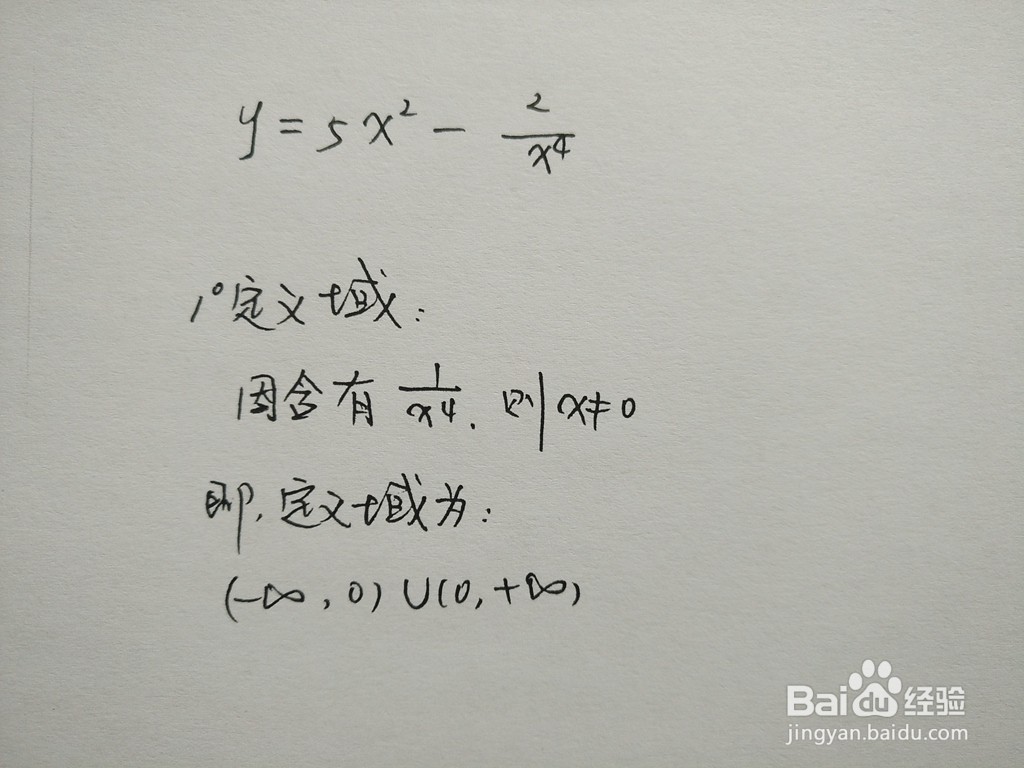 y = 5x² - 2/x⁴
1°定义域:
因含有 1/x⁴. 则x≠0
即,定义域为:
(-∞,0)∪(0,+∞)
Bai 经验
jingyan.baidu.com